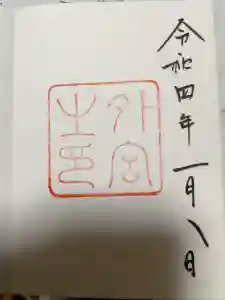 令和四年一月八日
外宮之印